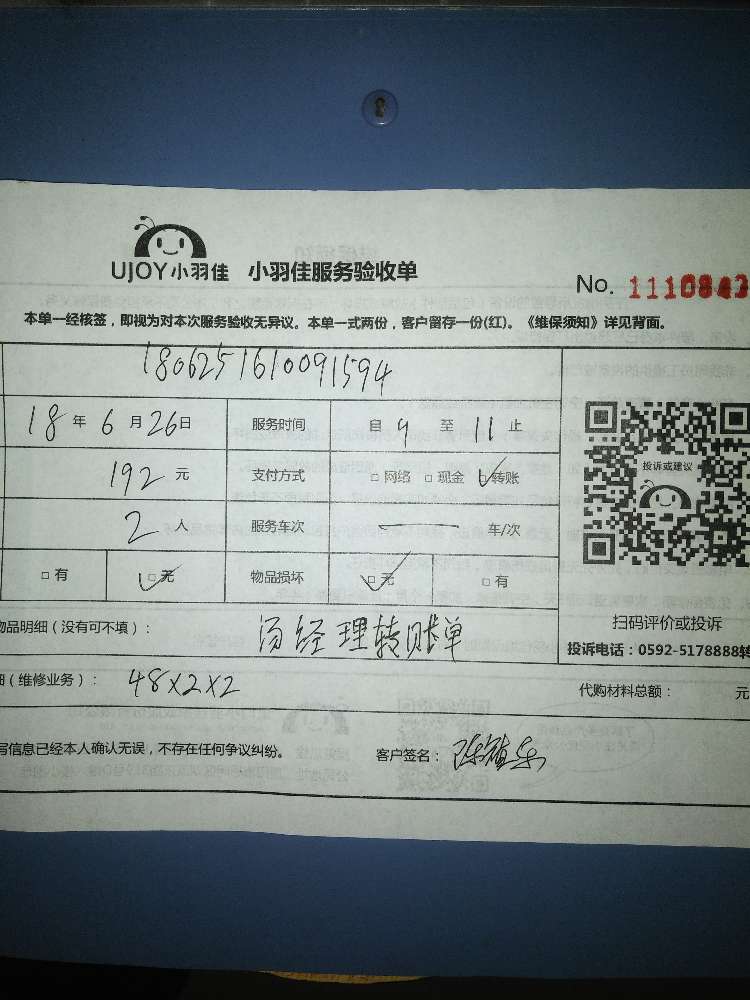 UJOY小羽佳 小羽佳服务验收单
No. 1110843
本单一经核签，即视为对本次服务验收无异议。本单一式两份，客户留存一份(红)。《维保须知》详见背面。
1806251610091594
18年6月26日 服务时间 自9至11止
192元 支付方式 □网络 □现金 □转账
2人 服务车次 车/次
□有 □无 物品损坏 □无 □有
投诉或建议
扫码评价或投诉
物品明细（没有可不填）： 汤经理转账单
投诉电话：0592-5178888转
（维修业务）： 48×2×2 代购材料总额： 元
写信息已经本人确认无误，不存在任何争议纠纷。 客户签名：